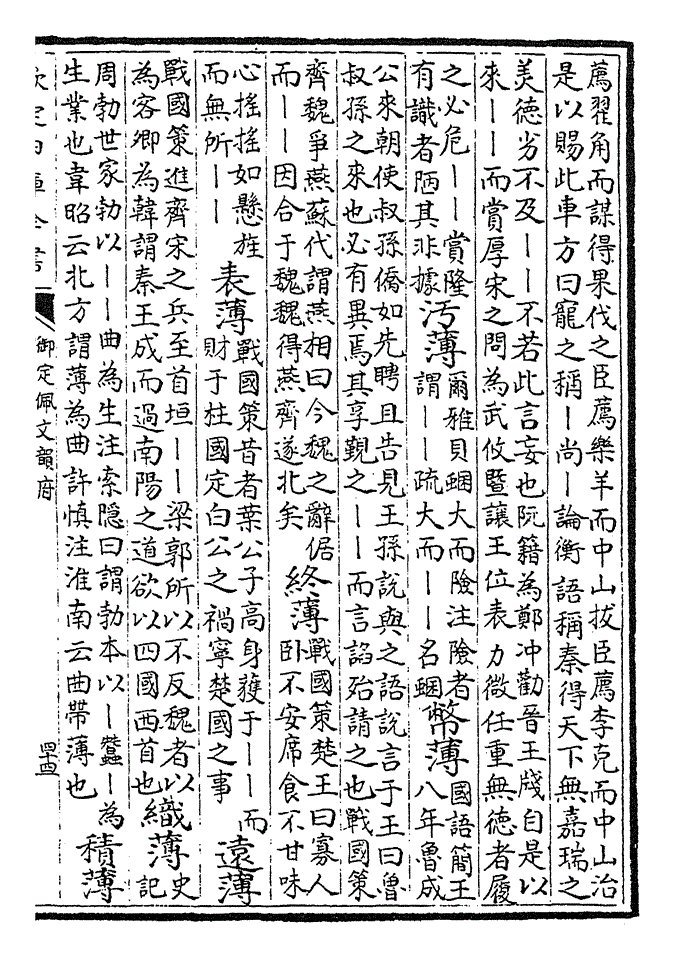 薦翟角而謀得果伐之臣薦樂羊而中山拔臣薦李克而中山治
是以賜此車方曰寵之稱丨尚丨論衡語稱秦得天下無嘉瑞之
美徳劣不及丨丨不若此言妄也阮籍為鄭冲勸晉王牋自是以
來丨丨而賞厚宋之問為武攸暨讓王位表力微任重無徳者履
之必危丨丨賞隆
有識者陋其非據
汚薄
爾雅貝蜠大而險注險者
謂丨丨疏大而丨丨名蜠
幣薄
國語簡王
八年魯成
公來朝使叔孫僑如先聘且告見王孫說與之語說言于王曰魯
叔孫之來也必有異焉其享覲之丨丨而言謟殆請之也戰國策
齊魏爭燕蘇代謂燕相曰今魏之辭倨
而丨丨因合于魏魏得燕齊遂北矣
終薄
戰國策楚王曰寡人
卧不安席食不甘味
心搖搖如懸旌
而無所丨丨
表薄
戰國策昔者葉公子高身獲于丨丨而
財于柱國定白公之禍寧楚國之事
遠薄
戰國策進齊宋之兵至首垣丨丨梁郭所以不反魏者以
為客卿為韓謂秦王成而過南陽之道欲以四國西首也
織薄
史
記
周勃世家勃以丨丨曲為生注索隠曰謂勃本以丨蠶丨為
生業也韋昭云北方謂薄為曲許慎注淮南云曲帶薄也
積薄
欽定四庫全書
御定佩文韻府
四十四